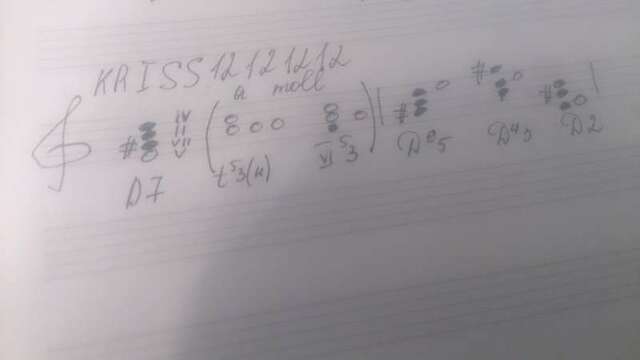 KRISS12121212
a moll
IV
II
VII
V
D7
t53(н)
VI53
D65
D43
D2